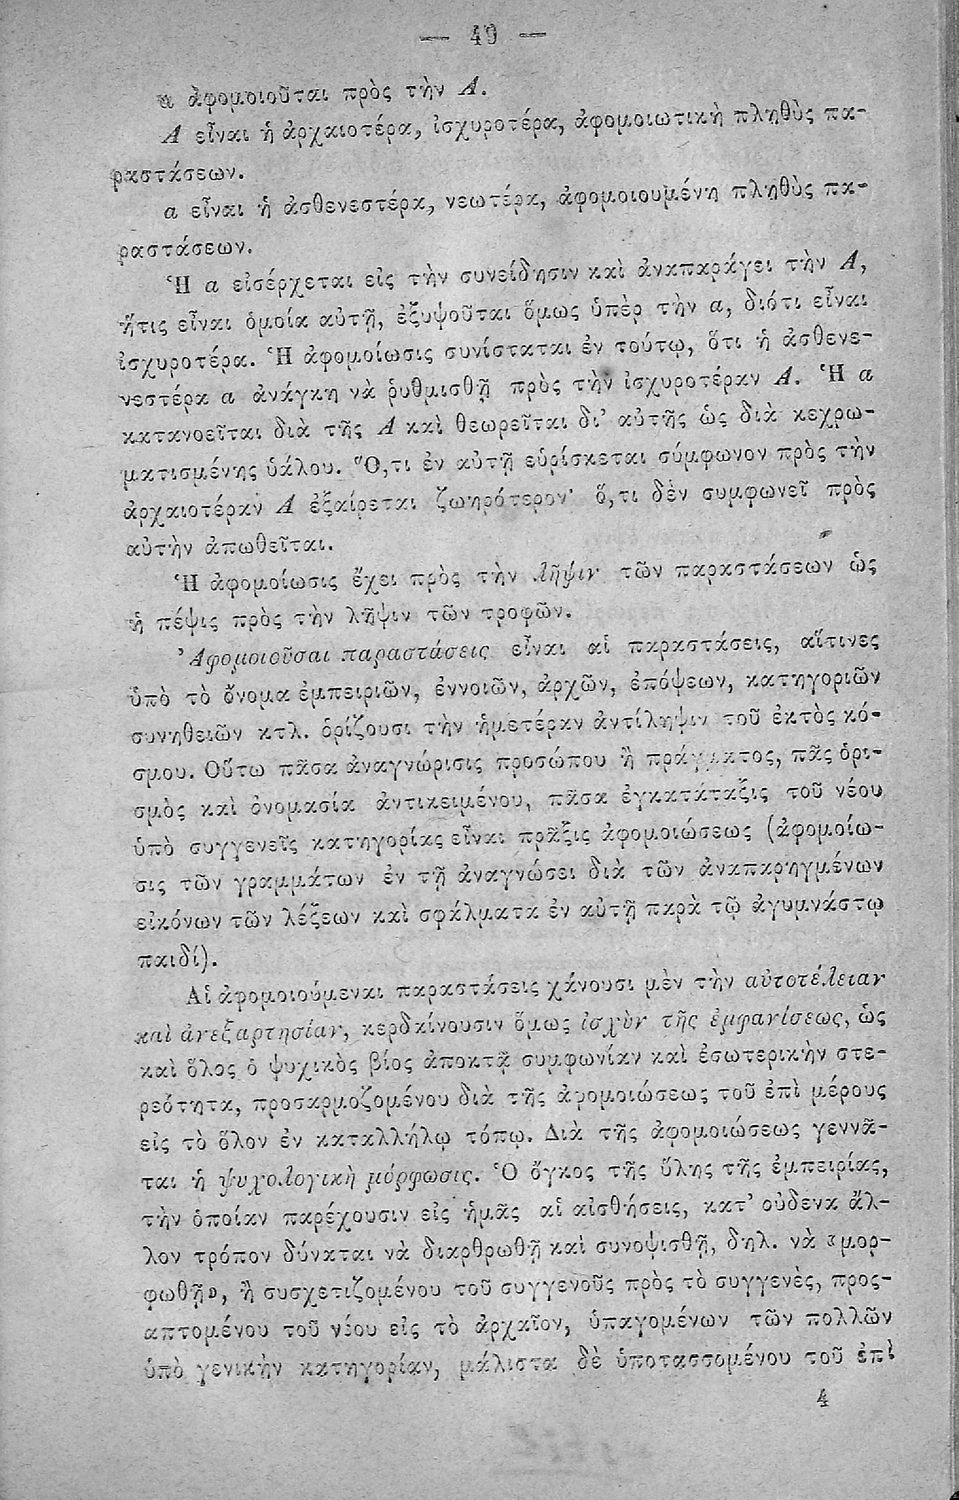 — 49 —
α ἀφομοιοῦται πρὸς τὴν Α.
Α εἶναι ἡ ἀρχαιοτέρα, ἰσχυροτέρα, ἀφομοιωτικὴ πληθὺς πα-
ραστάσεων.
α εἶναι ἡ ἀσθενεστέρα, νεωτέρα, ἀφομοιουμένη πληθὺς πα-
ραστάσεων.
Ἡ α εἰσέρχεται εἰς τὴν συνείδησιν καὶ ἀναπαράγει τὴν Α,
ἥτις εἶναι ὁμοία αὐτῇ, ἐξυψοῦται ὅμως ὑπὲρ τὴν α, διότι εἶναι
ἰσχυροτέρα. Ἡ ἀφομοίωσις συνίσταται ἐν τούτῳ, ὅτι ἡ ἀσθενε-
νεστέρα α ἀνάγκη νὰ ῥυθμισθῇ πρὸς τὴν ἰσχυροτέραν Α. Ἡ α
κατανοεῖται διὰ τῆς Α καὶ θεωρεῖται δι' αὐτῆς ὡς διὰ κεχρω-
ματισμένης ὑάλου. Ὅ,τι ἐν αὐτῇ εὑρίσκεται σύμφωνον πρὸς τὴν
ἀρχαιοτέραν Α ἐξαίρεται ζωηρότερον· ὅ,τι δὲν συμφωνεῖ πρὸς
αὐτὴν ἀπωθεῖται.
Ἡ ἀφομοίωσις ἔχει πρὸς τὴν λῆψιν τῶν παραστάσεων ὡς
ἡ πέψις πρὸς τὴν λῆψιν τῶν τροφῶν.
Ἀφομοιοῦσαι παραστάσεις εἶναι αἱ παραστάσεις, αἵτινες
ὑπὸ τὸ ὄνομα ἐμπειριῶν, ἐννοιῶν, ἀρχῶν, ἐπόψεων, κατηγοριῶν
συνηθειῶν κτλ. ὁρίζουσι τὴν ἡμετέραν ἀντίληψιν τοῦ ἐκτὸς κό-
σμου. Οὕτω πᾶσα ἀναγνώρισις προσώπου ἢ πράγματος, πᾶς ὁρι-
σμὸς καὶ ὀνομασία ἀντικειμένου, πᾶσα ἐγκατάταξις τοῦ νέου
ὑπὸ συγγενεῖς κατηγορίας εἶναι πρᾶξις ἀφομοιώσεως (ἀφομοίω-
σις τῶν γραμμάτων ἐν τῇ ἀναγνώσει διὰ τῶν ἀναπαρηγμένων
εἰκόνων τῶν λέξεων καὶ σφάλματα ἐν αὐτῇ παρὰ τῷ ἀγυμνάστῳ
παιδί).
Αἱ ἀφομοιούμεναι παραστάσεις χάνουσι μὲν τὴν αὐτοτέλειαν
καὶ ἀνεξαρτησίαν, κερδαίνουσιν ὅμως ἰσχὺν τῆς ἐμφανίσεως, ὡς
καὶ ὅλος ὁ ψυχικὸς βίος ἀποκτᾷ συμφωνίαν καὶ ἐσωτερικὴν στε-
ρεότητα, προσαρμοζομένου διὰ τῆς ἀφομοιώσεως τοῦ ἐπὶ μέρους
εἰς τὸ ὅλον ἐν καταλλήλῳ τόπῳ. Διὰ τῆς ἀφομοιώσεως γεννᾶ-
ται ἡ ψυχολογικὴ μόρφωσις. Ὁ ὄγκος τῆς ὕλης τῆς ἐμπειρίας,
τὴν ὁποίαν παρέχουσιν εἰς ἡμᾶς αἱ αἰσθήσεις, κατ' οὐδένα ἄλ-
λον τρόπον δύναται νὰ διαρθρωθῇ καὶ συνοψισθῇ, δηλ. νὰ «μορ-
φωθῇ», ἢ συσχετιζομένου τοῦ συγγενοῦς πρὸς τὸ συγγενὲς, προς-
απτομένου τοῦ νέου εἰς τὸ ἀρχαῖον, ὑπαγομένων τῶν πολλῶν
ὑπὸ γενικὴν κατηγορίαν, μάλιστα δὲ ὑποτασσομένου τοῦ ἐπὶ
4